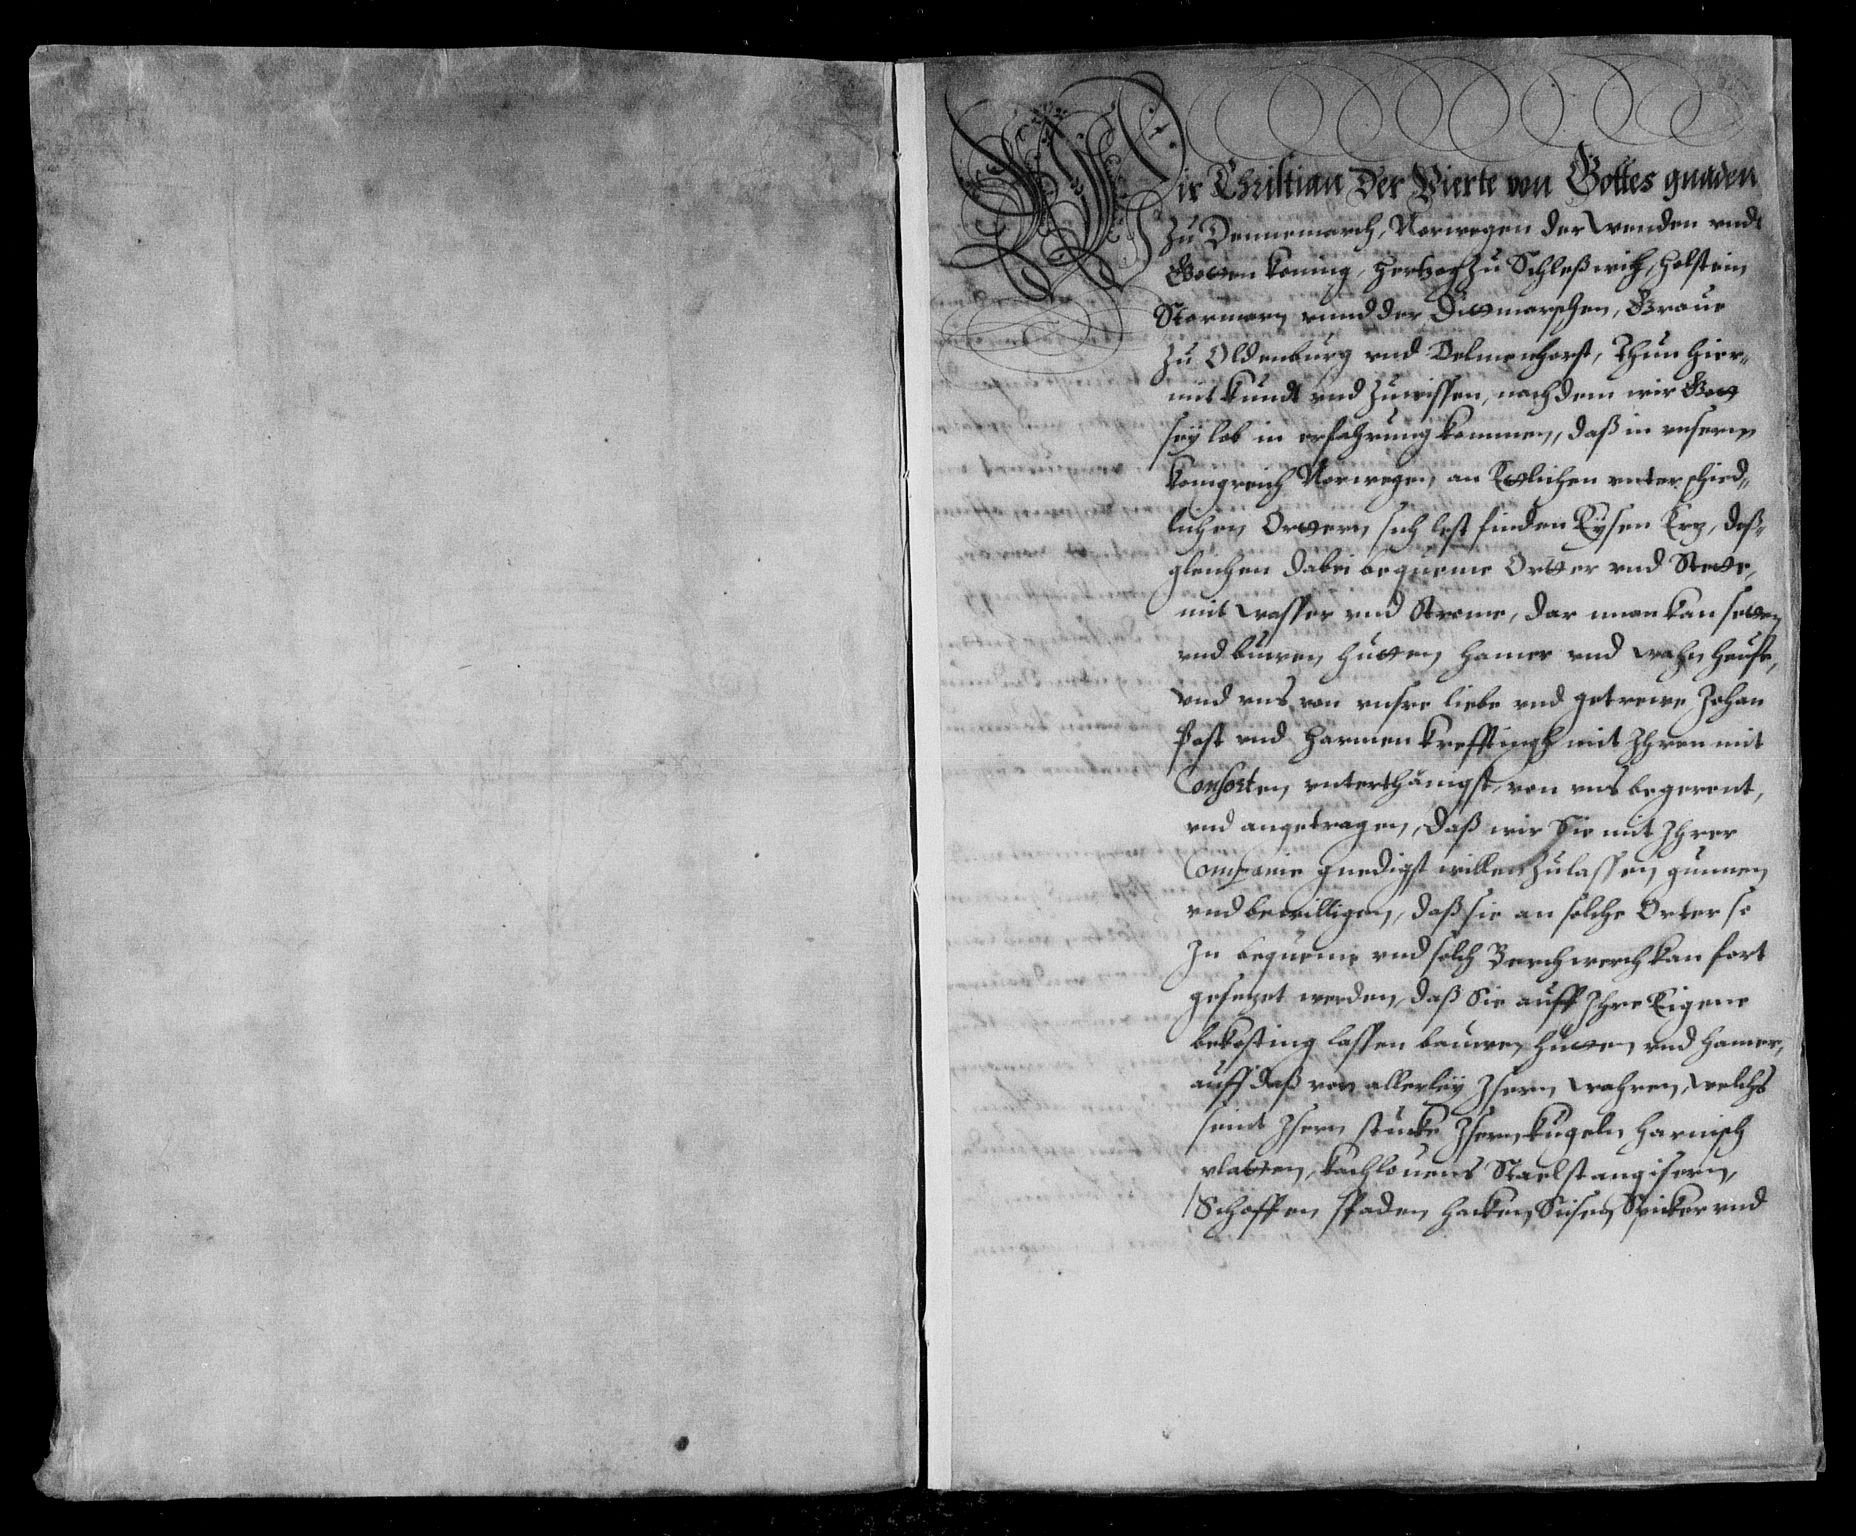 Wir Christian Der Vierte von Gottes gnaden
Zu Dennemarch, Norwegen der Wenden vndt
Gotten koning, Hertzog Zu Schleßwich, Holstein
Stormarn vnnd der Ditmarschen, Graue
Zu Oldenburg vnd Delmenhorst, Thun hier-
mit kundt vnd Zuwissen, nachdem wir Gott
sey lob in erfahrung kommen, daß in vnserm
konigreich Norwegen an Etlichen vnterschied-
lichen Ortern, sich lest finden Eysen Erz, deß-
gleichen dabei bequeme Orter vnd Stette,
mit Wasser vnd Strome, dar man kan setten
vnd buwen hutten hamer vnd Wahn heuser,
Vnd vns von vnsre liebe vnd getrewe Johan
Post vnd Harmen Krefftingh mit Ihren mit
Consorten, vnterthänigst, von vns begerent,
vnd angetragen, daß wir Sie mit Ihrer
Companie gnedigst willen Zulassen gunnen
vnd bewilligen, daß sie an solche Orter so
Zu bequeme vnd solch Berchwerch kan fort
gesezet werden, daß Sie auff Ihre Eigene
bekosting lassen bauwen, hutten vnd hamer,
auff daß von allerley Isern Wahren, Welchs
seint Isern stucke Isern kugeln Harnisch
platten, kachlouens Staelstangisern,
Schoffen spaden hacken, Spicker vnd